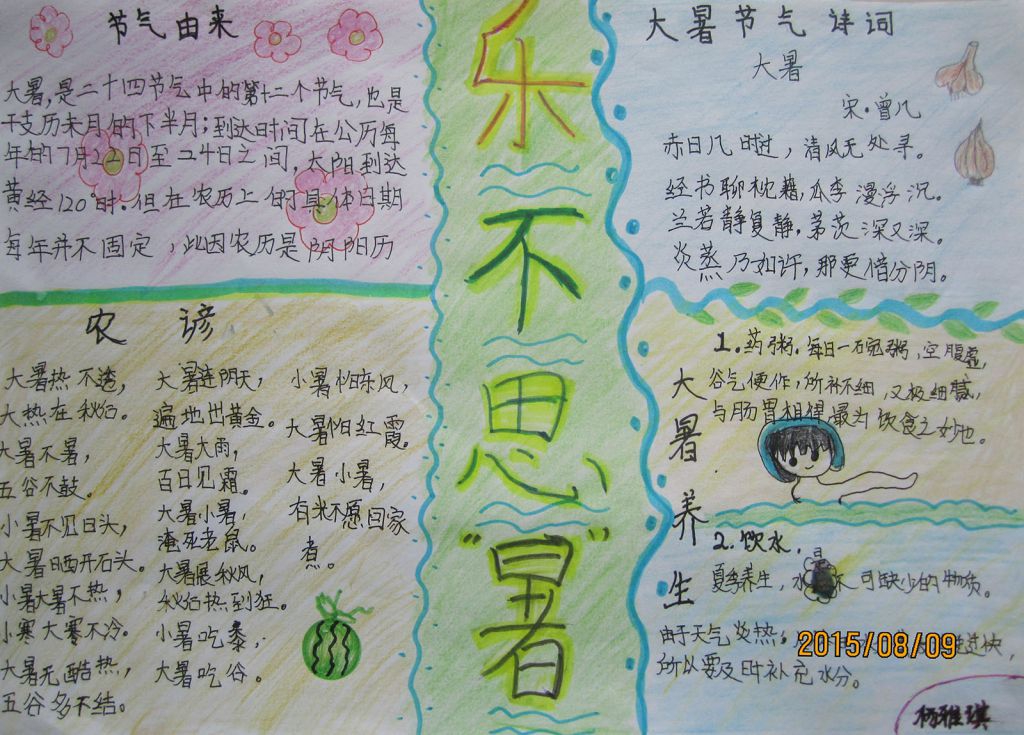 节气由来
大暑，是二十四节气中的第十二个节气，也是
干支历未月的下半月；到达时间在公历每
年的7月22日至二4日之间，太阳到达
黄经120°时．但在农历上的具体日期
每年并不固定，此因农历是阴阳历
农谚
大暑热不透，
大热在秋后。
大暑不暑，
五谷不鼓。
小暑不见日头，
大暑晒开石头。
小暑大暑不热，
小寒大寒不冷。
大暑无酷热，
五谷多不结。
大暑连阴天，
遍地出黄金。
大暑大雨，
百日见霜。
大暑小暑，
淹死老鼠。
大暑展秋风，
秋后热到狂。
小暑吃黍，
大暑吃谷。
小暑怕东风，
大暑怕红霞。
大暑小暑，
有米不愿回家
煮。
乐不思“暑”
大暑节气诗词
大暑
宋·曾几
赤日几时过，清风无处寻。
经书聊枕藉，瓜李漫浮沉。
兰若静复静，茅茨深又深。
炎蒸乃如许，那更惜分阴。
大暑养生
1．药粥．每日一碗粥，空腹
谷气便作，所补不细，又极细腻，
与肠胃相得最为饮食之妙也。
2．饮水．
夏季养生，水是不可缺少的物质。
由于天气炎热，
快，
所以要及时补充水分。
2015/08/09
杨雅琪